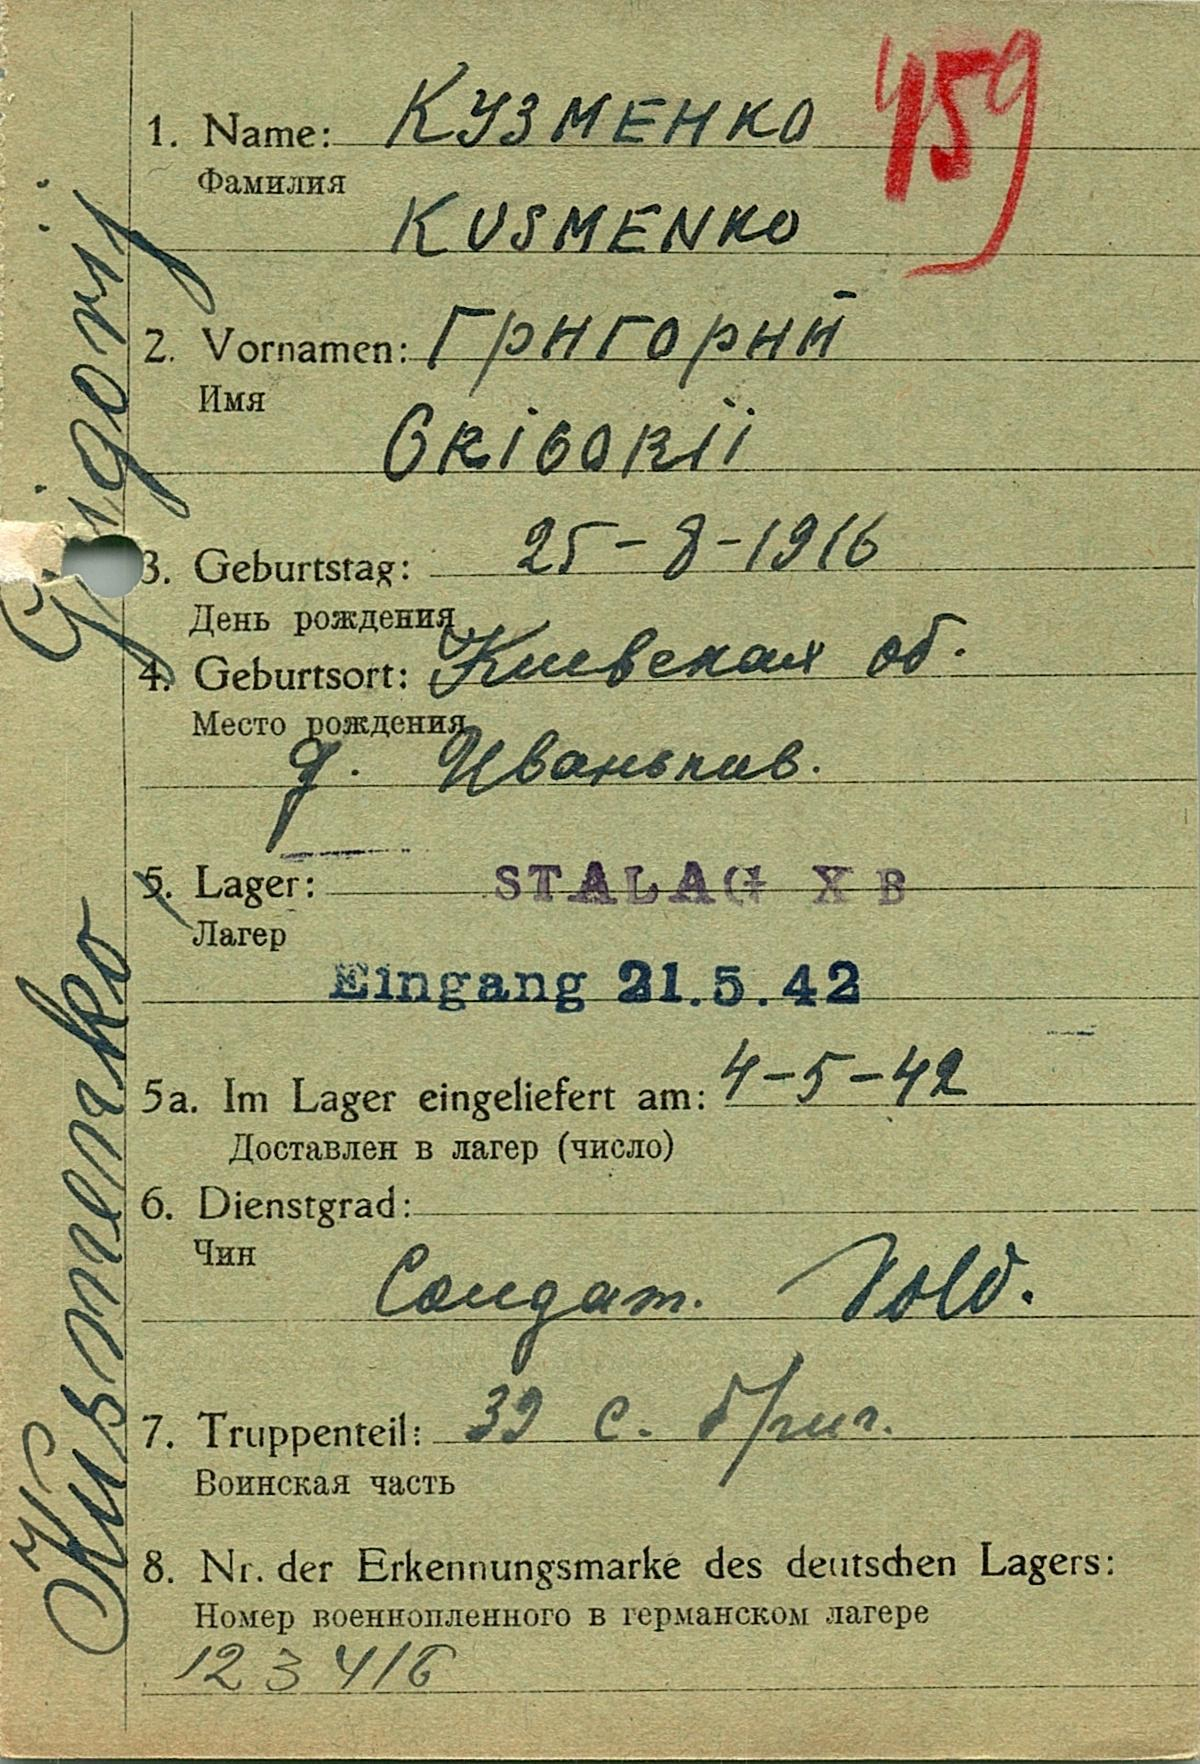 459
1. Name: КУЗМЕНКО
Фамилия
KUSMENKO
2. Vornamen: ГРИГОРИЙ
Имя
GRIGORII
3. Geburtstag: 25-8-1916
День рождения
4. Geburtsort: Киевская об.
Место рождения
д. Иваньков.
5. Lager: STALAG X B
Лагер
Eingang 21.5.42
5a. Im Lager eingeliefert am: 4-5-42
Доставлен в лагер (число)
6. Dienstgrad:
Чин
Солдат. Sold.
7. Truppenteil: 39 с. бриг.
Воинская часть
8. Nr. der Erkennungsmarke des deutschen Lagers:
Номер военнопленного в германском лагере
123416
Kusmenko Grigorij